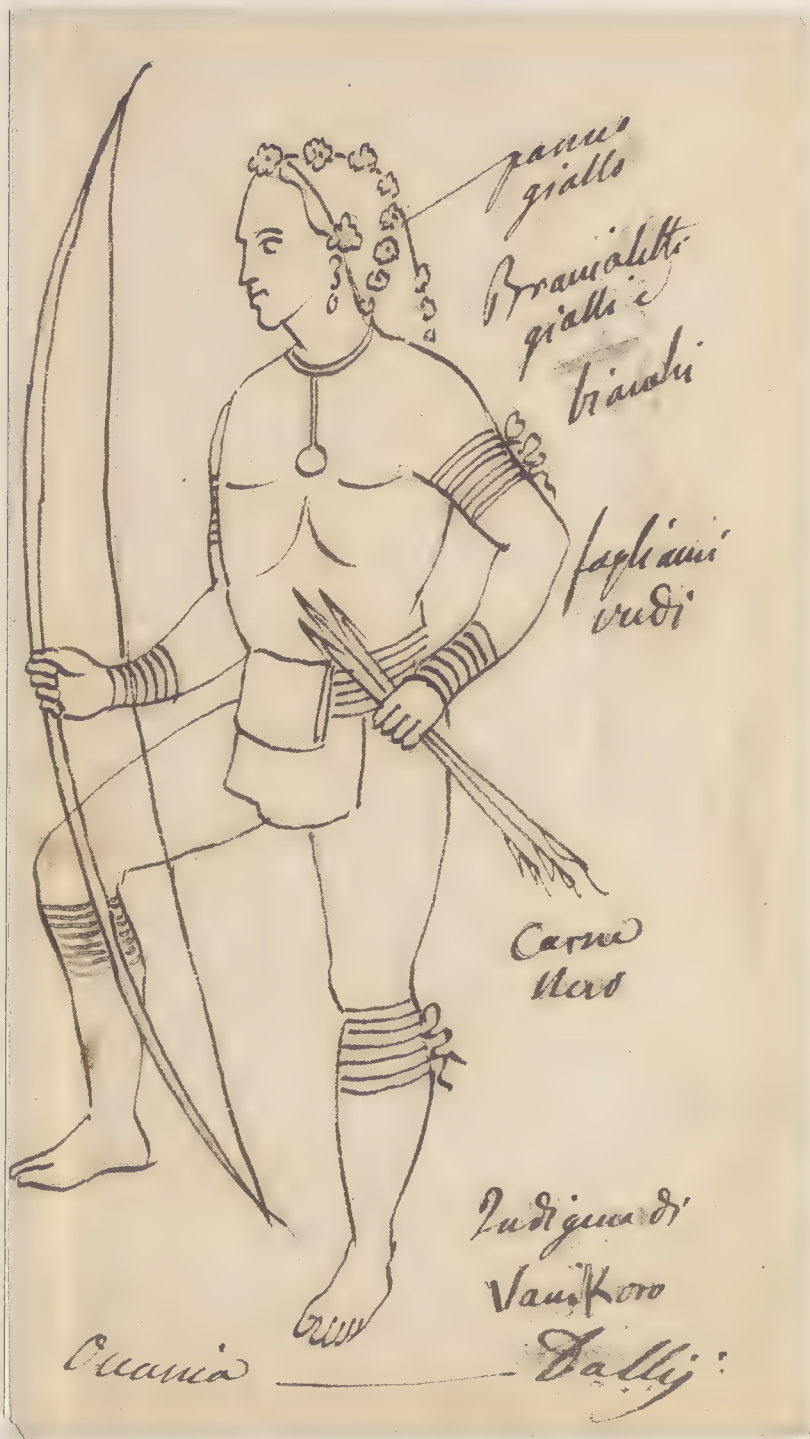 panno
giallo
Bracialetti
gialli e
bianchi
fogliami
verdi
Carne
Nero
Indigena di
Vanikoro
Oceania